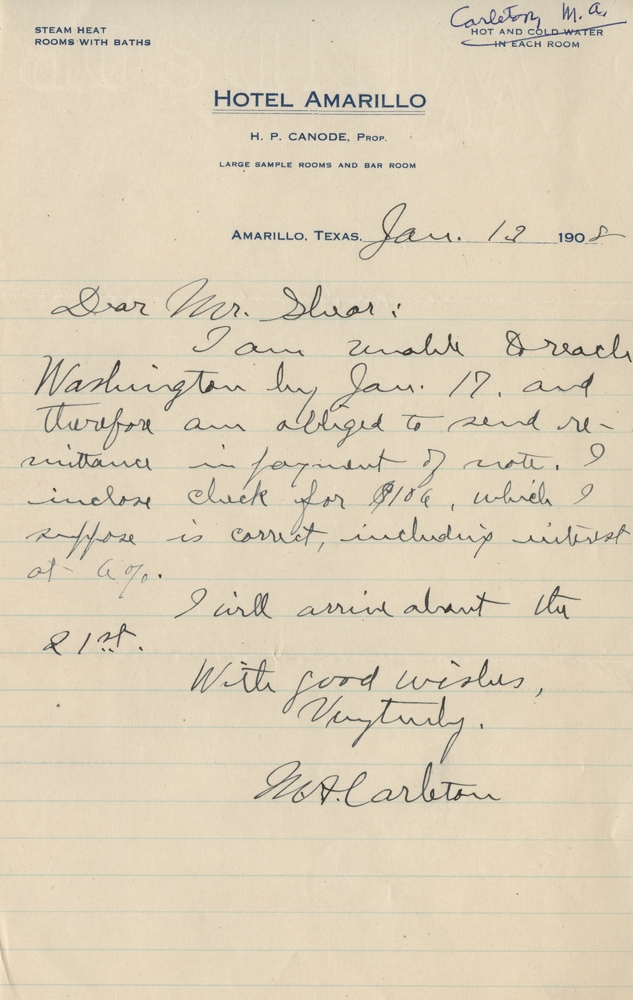 Carleton, M. A.
STEAM HEAT
ROOMS WITH BATHS
HOT AND COLD WATER
IN EACH ROOM
HOTEL AMARILLO
H. P. CANODE, PROP.
LARGE SAMPLE ROOMS AND BAR ROOM
AMARILLO, TEXAS, Jan. 1908
Dear Mr. Shear:
I am unable to reach
Washington by Jan. 17, and
therefore am obliged to send re-
mittance in payment of note. I
inclose check for $106, which I
suppose is correct, including interest
at 6%.
I will arrive about the
21st.
With good wishes,
Very truly.
M.A. Carleton